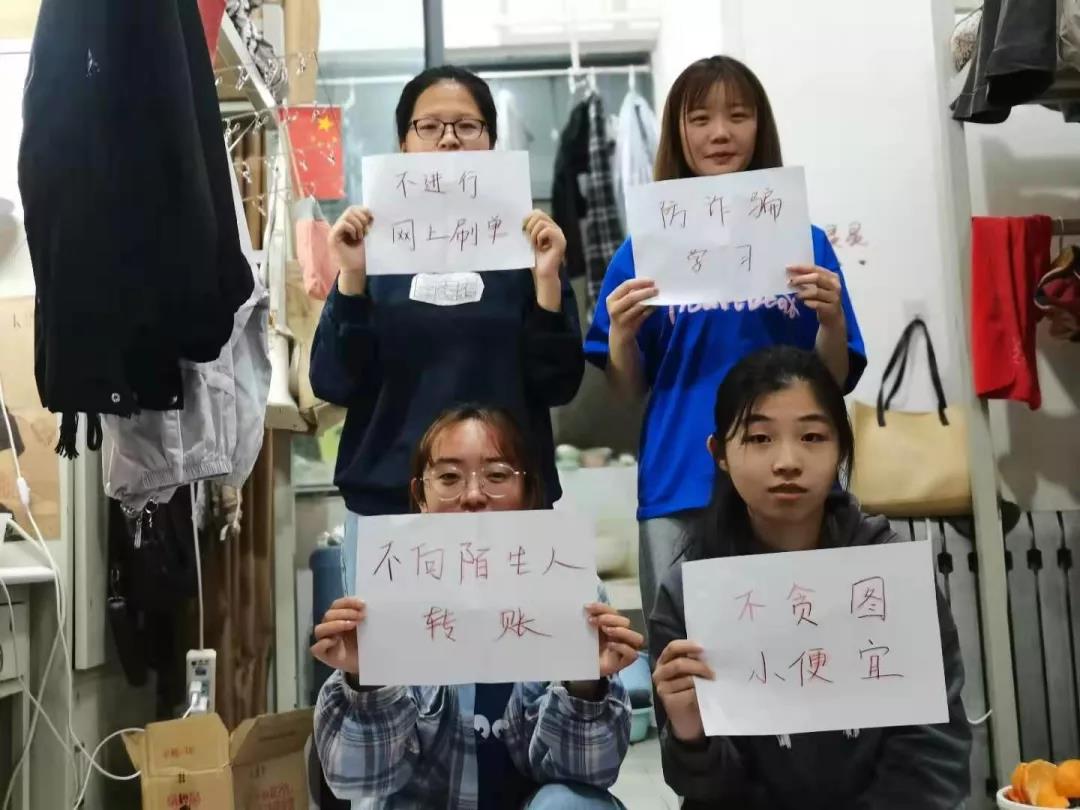 不进行
网上刷单
防诈骗
学习
不向陌生人
转账
不贪图
小便宜